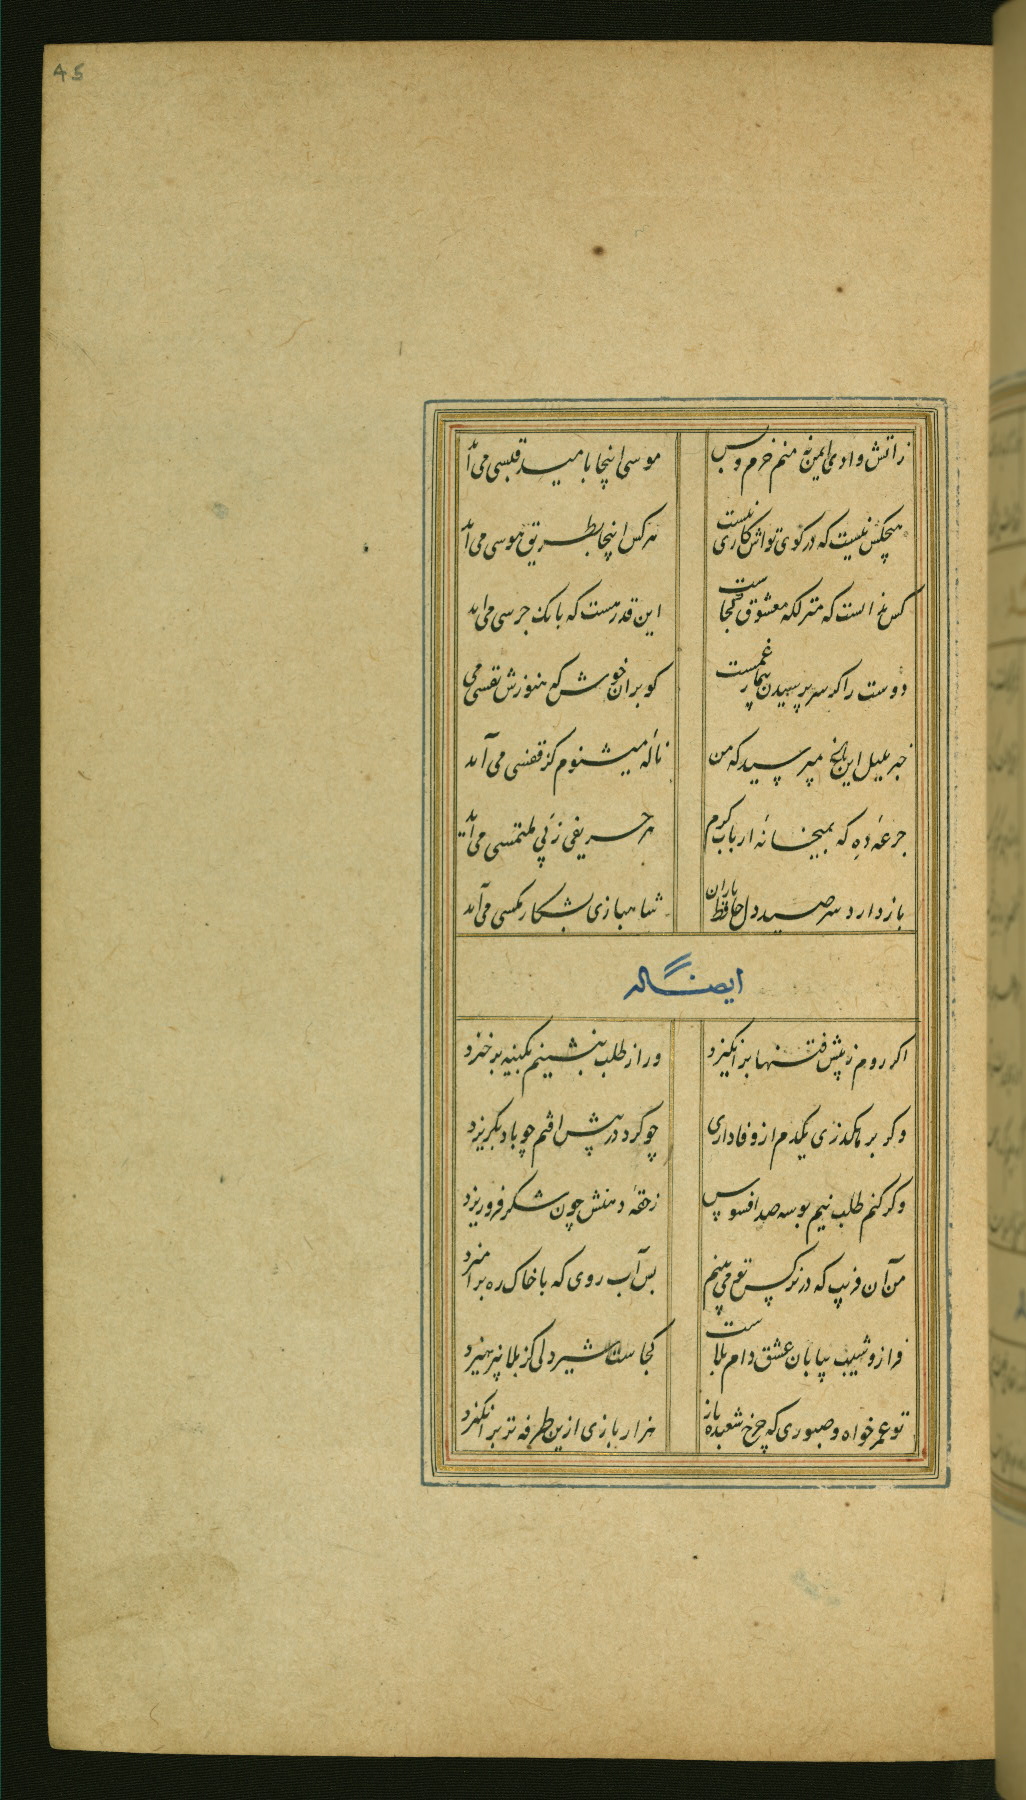 45
زاتش وادی ایمن نه منم خرم و بس موسی اینجا بامید قبسی می آید
هیچکس نیست که در کوی تواش کاری نیست هر کس اینجا بطریق هوسی می آید
کس ندانست که منزلکه معشوق کجاست این قدر هست که بانک جرسی می اید
دوست را کر سر پرسیدن بیمار غمست کو بران خوش که هنوزش نفسی می
خبر بلبل این باغ مپرسید که من نالهٔ میشنوم کز قفسی می آید
جرعهٔ ده که بمیخانهٔ ارباب کرم هر حریفی ز پی ملتمسی می آید
یار دارد سر صید دل حافظ یاران شاهبازی بشکار مکسی می آید
ایضا له
اکر روم ز پیش فتنها بر انکیزد ور از طلب بنشینم بکینه بر خیزد
وکر بر هکذری یکدم از وفاداری چو کرد در پیش افتم چو باد بکریزد
وکر کنم طلب نیم بوسه صد افسوس ز حقهٔ دهنش چون شکر فرو ریزد
من آن فریب که در نرکس تو می بینم بس آب روی که با خاک ره بر امیزد
فراز و شیب بیابان عشق دام بلاست کجاست شیر دلی کز بلا نپرهیزد
تو عمر خواه و صبوری که چرخ شعبده باز هزار بازی ازین طرفه تر بر انکیزد